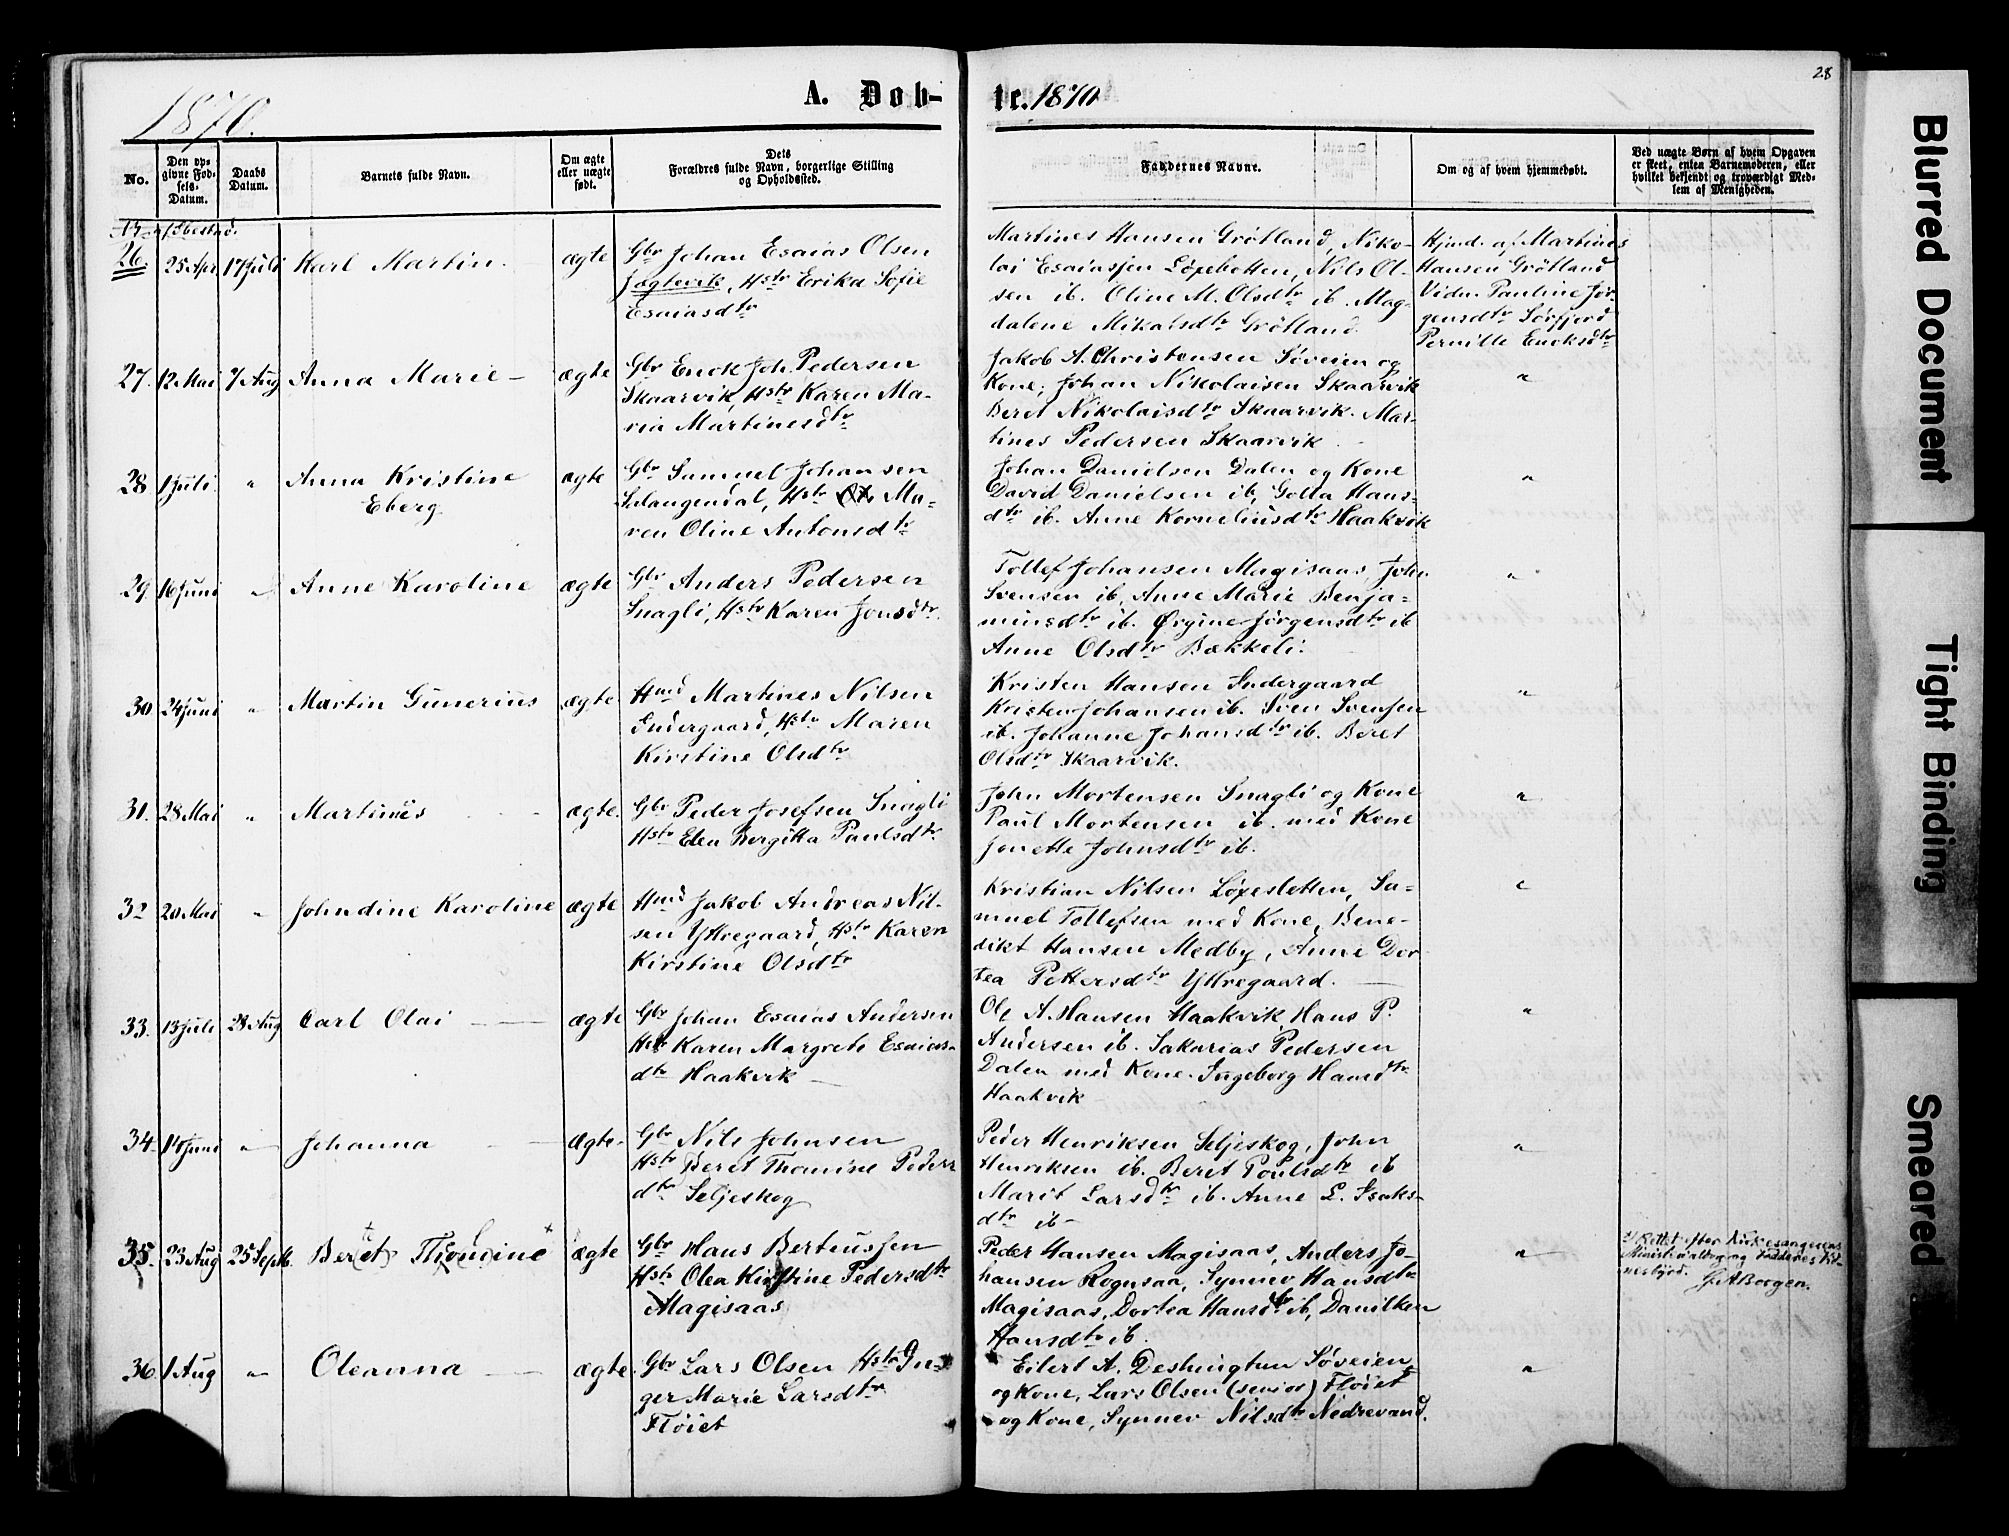 28
1870.
A. Døb-
te. 1870
No.
Den op-
givne Fød-
sels-
Datum.
Daabs
Datum.
Barnets fulde Navn.
Om ægte
eller uægte
født.
Dets
Forældres fulde Navn, borgerlige Stilling
og Opholdssted.
Faddernes Navne.
Om og af hvem hjemmedøbt.
Ved uægte Børn af hvem Opgaven
er skeet, enten Barnemoderen, eller
hvilket bekjendt og troværdigt Med-
lem af Menigheden.
Ibestad.
26. 25 Apr. 17 Juli Karl Martin. ægte
Gbr Johan Esaias Olsen
Jægtevik, Hstr Erika Sofie
Esaiasdtr
Martines Hansen Grötland, Niko-
lai Esaiassen Löxebotten, Nils Ol-
sen ib. Oline M. Olsdtr ib. Mag-
dalene Mikalsdtr Grötland.
Hjmd. af Martines
Hansen Grötland
Vidn. Pauline Jør-
gensdtr Sørfjord
Pernille Enoksdtr
27. 12 Mai 7 Aug Anna Marie - ægte
Gbr Enok Joh. Pedersen
Skaarvik, Hstr Karen Ma-
ria Martinesdtr
Jakob A. Christensen Søveien og
Kone, Johan Nikolaisen Skaarvik
Beret Nikolaisdtr Skaarvik. Mar-
tines Pedersen Skaarvik
"
28 1 Juli. " Anna Kristine
Eberg ægte
Gbr Samuel Johansen
Salangendal, Hstr Ma-
ren Oline Antonsdtr
Johan Danielsen Dalen og Kone
David Danielsen ib, Golla Hans-
dtr ib. Anne Korneliusdtr Haakvik
"
29. 16 Juni " Anne Karoline ægte
Gbr Anders Pedersen
Snagli, Hstr Karen Jonsdtr.
Tollef Johansen Magisaas, John
Svensen ib, Anne Marie Benja-
minsdtr ib. Ørgine Jörgensdtr ib
Anne Olsdtr Bækkeli.
"
30. 24 Juni " Martin Gunerius ægte
Hmd Martines Nilsen
Indergaard, Hstr Maren
Kirstine Olsdtr
Kristen Hansen Indergaard
Kristen Johansen ib. Sven Svensen
ib. Johanne Johansdtr ib. Beret
Olsdtr Skaarvik.
"
31. 28 Mai " Martines - - ægte.
Gbr Peder Josefsen Snagli
Hstr Elen Bergitta Paulsdtr
John Mortensen Snagli og Kone
Paul Mortensen ib. med Kone
Jonette Johnsdtr ib.
"
32 20 Mai " Johndine Karoline ægte
Hmd Jakob Andreas Nil-
sen Yttregaard, Hstr Karen
Kirstine Olsdtr
Kristian Nilsen Löxesletten, Sa-
muel Tollefsen med Kone, Bene-
dikt Hansen Medby, Anne Dor-
tea Pettersdtr Yttregaard.
"
33. 13 Juli 28 Aug Carl Olai - ægte
Gbr Johan Esaias Andersen
Hstr Karen Margrete Esaias-
dtr Haakvik
Ole A. Hansen Haakvik, Hans P.
Andersen ib. Sakarias Pedersen
Dalen med Kone. Ingeborg Hansdtr
Haakvik
"
34. 14 Juni " Johanna - ægte.
Gbr Nils Johnsen
Hstr Beret Thomine Peders
dtr Seljeskog
Peder Henriksen Seljeskog, John
Henriksen ib. Beret Poulsdtr ib
Marit Larsdtr ib. Anne L. Isaks-
dtr ib-
"
35. 23 Aug 25 Septb. ægte
Gbr Hans Berteussen
Hstr Olea Kirstine Pedersdtr
Magisaas
Peder Hansen Magisaas, Anders Jo-
hansen Rognsaa, Synnev Hansdtr
Magisaas, Dortea Hansdtr ib, Danilken
Hansdtr ib.
"
Rettet efter Kirkesangerens
Ministerialbog og Faderens Vid-
nesbyrd. Borgen.
36. 1 Aug " Oleanna - ægte.
Gbr Lars Olsen Hstr In-
ger Marie Larsdtr
Fløiet
Eilert A. Deshington Søveien
og Kone, Lars Olsen (senior) Fløiet
og Kone, Synnev Nilsdtr Nedrevand.
"
Blurred Document
Tight Binding
Smeared